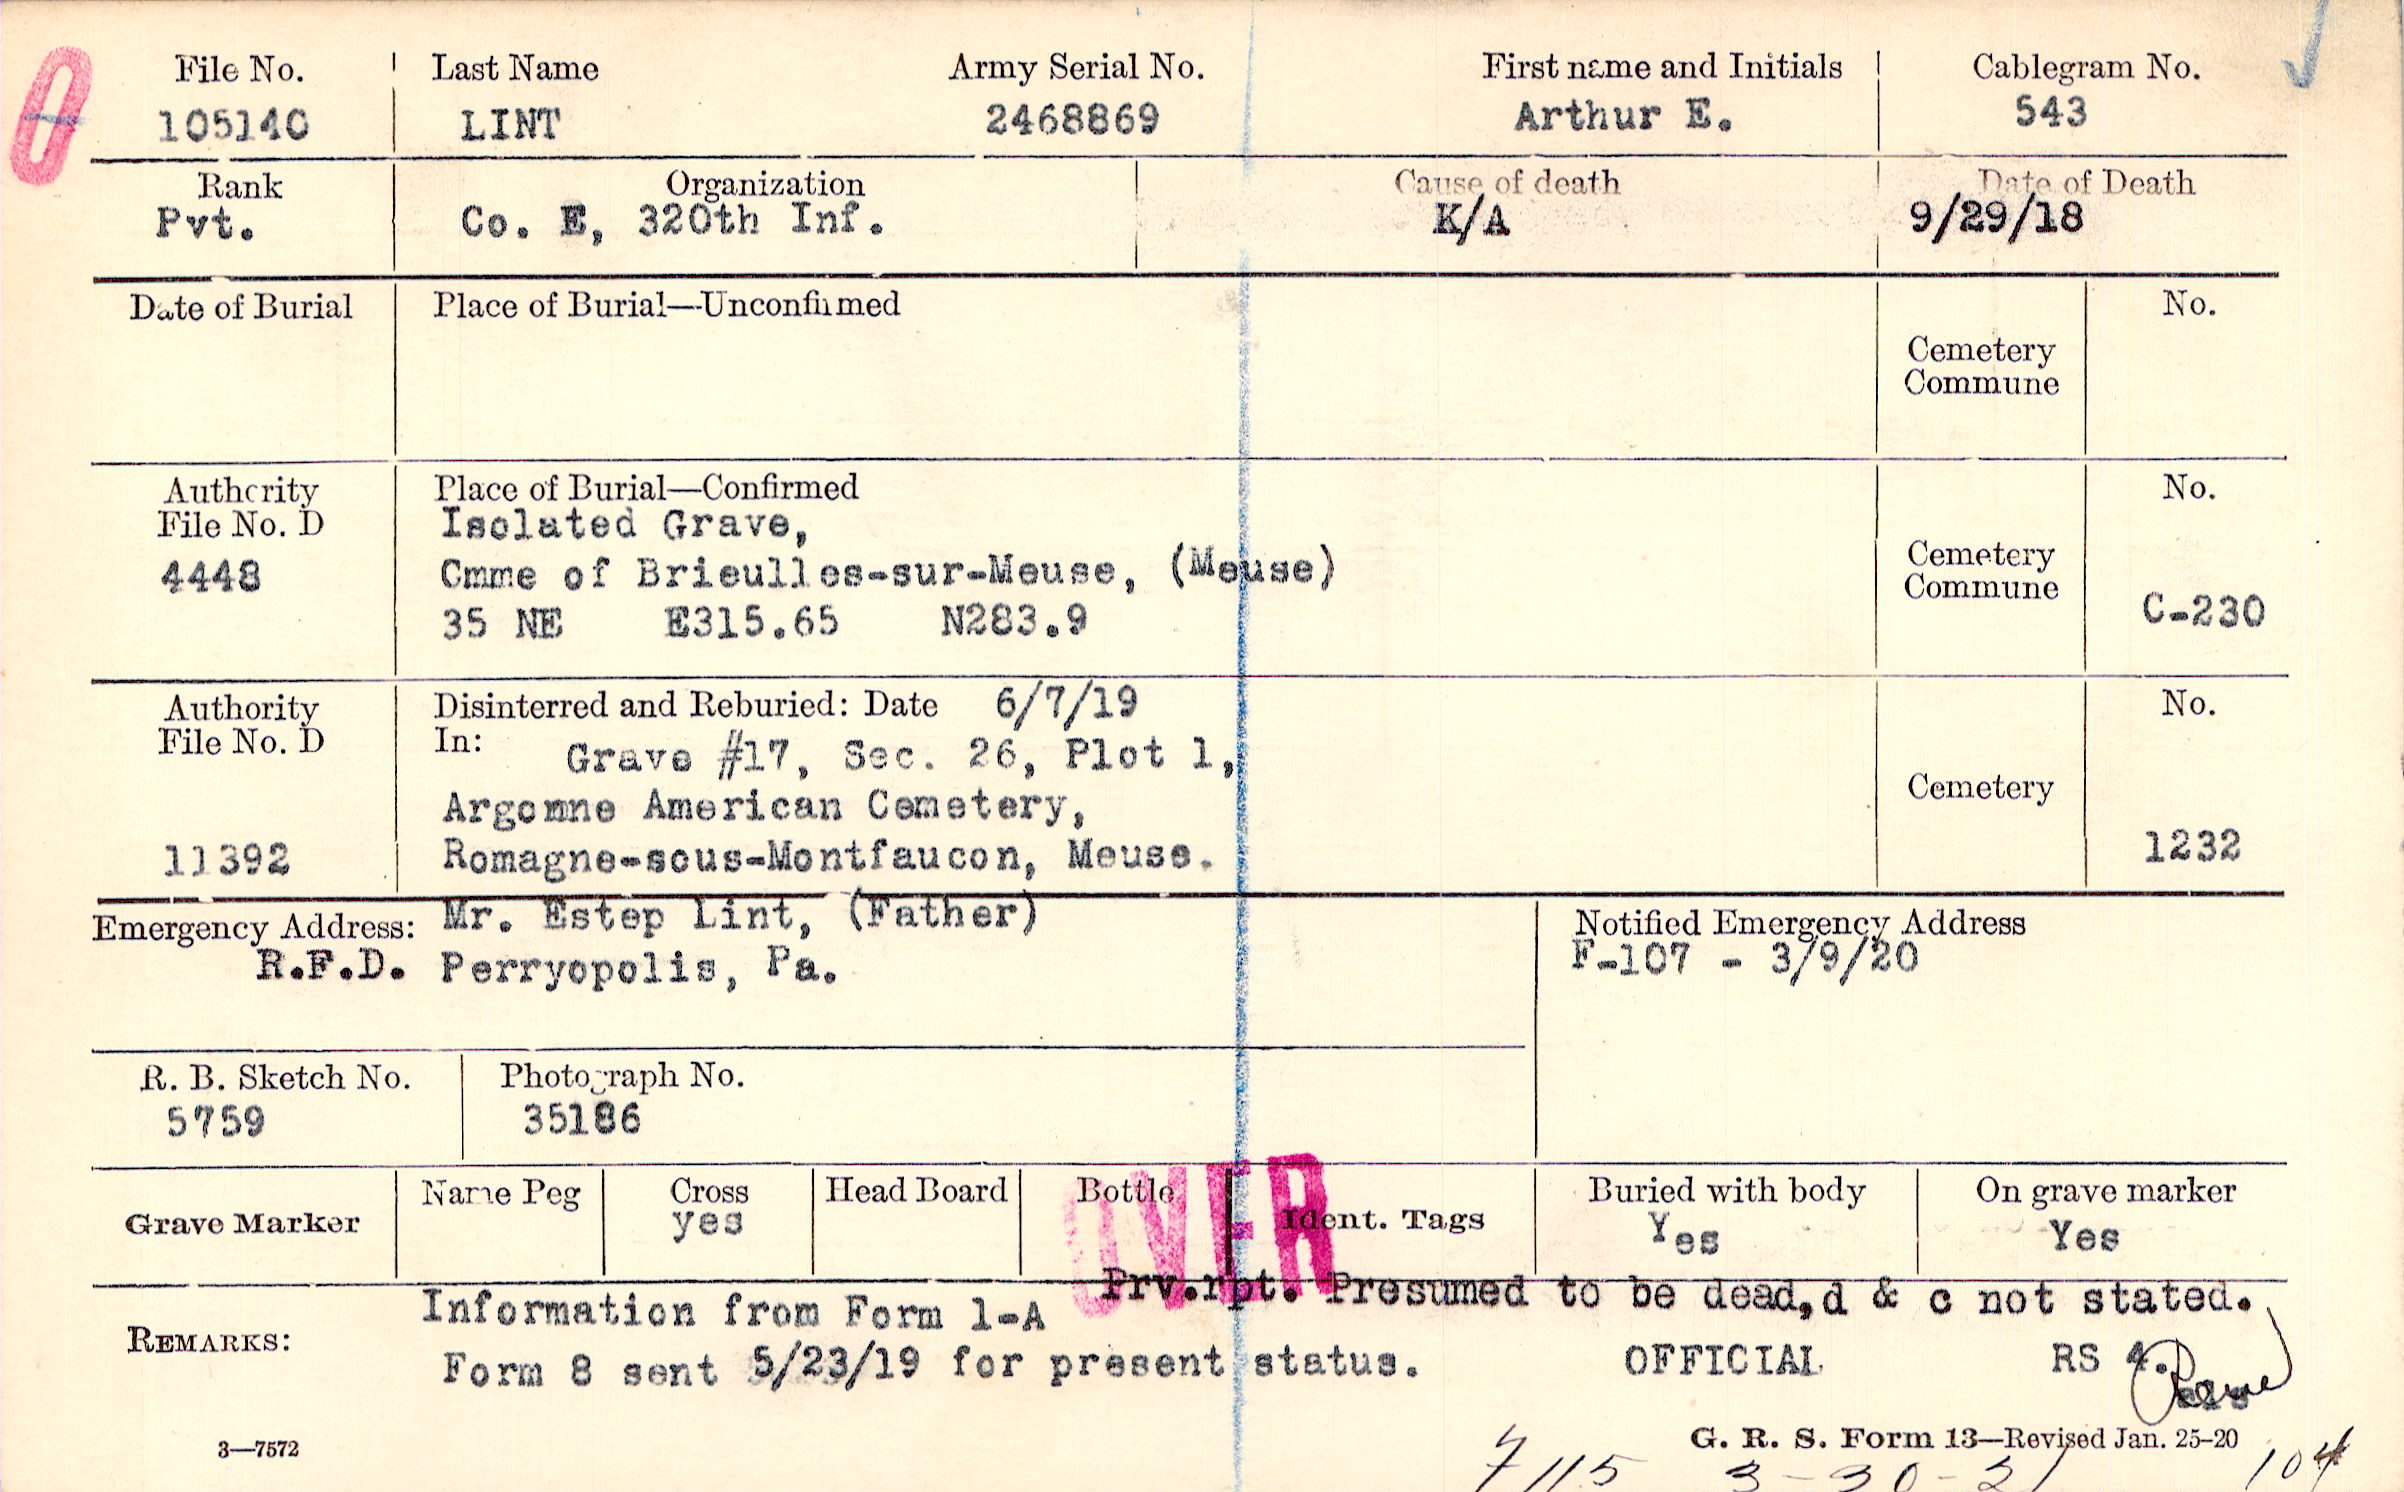 File No. Last Name Army Serial No. First name and Initials Cablegram No.
105140 LINT 2468869 Arthur E. 543
Rank Organization Cause of death Date of Death
Pvt. Co. E, 320th Inf. K/A 9/29/18
Date of Burial Place of Burial—Unconfirmed No.
Cemetery
Commune
Authority Place of Burial—Confirmed No.
File No. D Isolated Grave,
4448 Cmme of Brieulles-sur-Meuse, (Meuse) Cemetery
Commune
35 NE E315.65 N283.9 C-230
Authority Disinterred and Reburied: Date 6/7/19 No.
File No. D In: Grave #17, Sec. 26, Plot 1,
Cemetery
Argonne American Cemetery,
11392 Romagne-sous-Montfaucon, Meuse. 1232
Emergency Address: Mr. Estep Lint, (Father) Notified Emergency Address
R.F.D. Perryopolis, Pa. F-107 - 3/9/20
R. B. Sketch No. Photograph No.
5759 35186
Grave Marker Name Peg Cross Head Board Bottle Ident. Tags Buried with body On grave marker
yes Yes Yes
OVER
Prv.rpt. Presumed to be dead,d & c not stated.
REMARKS: Information from Form 1-A
Form 8 sent 5/23/19 for present status. OFFICIAL RS 4.
3—7572 G. R. S. Form 13—Revised Jan. 25-20
7115 3-30-21 104